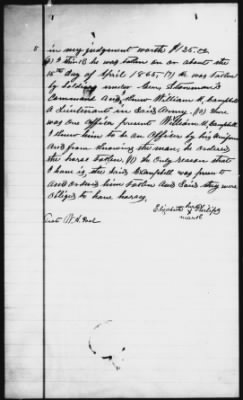 5
in my judgement worth $135.00
(6) I think he was taken on or about the
15th day of April 1865, (7) he was taken
by soldiers under Gen. Stoneman's
Command and knew William H. Campbell
a Lieutenant in said Army. (8) There
was one Officer present William H. Campbell
I knew him to be an Officer by his uniform
and from knowing the man, he ordered
the horse taken, (9) the only reason that
I have is, the said Campbell was present
and ordered him taken and said they were
obliged to have horses,
Elizabeth her x mark Phillips
Test W. H.